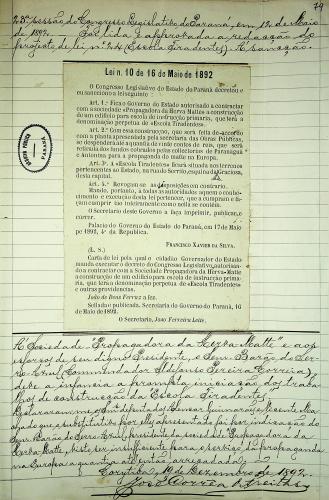 24
28ª sessão do Congresso Legislativo do Paraná, em 12 de Maio
de 1892. Foi lida e approvada a redacção do
projecto de lei nº 24 (Escola Tiradentes). A' sancção.
Lei n. 10 de 16 de Maio de 1892
O Congresso Legislativo do Estado do Paraná decretou e
eu sancciono a lei seguinte:
Art. 1.º Fica o Governo do Estado autorisado a contractar
com a sociedade «Propagadora da Herva Matte» a construcção
de um edificio para escola de instrucção primaria, que terá a
denominação perpetua de «Escola Tiradentes».
Art. 2.º Com essa construcção, que será feita de accordo
com a planta apresentada pela secretaria das Obras Publicas,
se despenderá até a quantia de cinto contos de reis, que será
retirada dos fundos cobrados pelas collectorias de Paranaguá
e Antonina para a propaganda do matte na Europa.
Art. 3.º A «Escola Tiradentes» ficará situada nos terrenos
pertencentes ao Estado, na rua do Serrito, esquina da Graciosa,
desta capital.
Art. 4.º Revogam-se as disposições em contrario.
Mando, portanto, a todas as autoridades a quem o conhe-
cimento e execução desta lei pertence, que a cumpram e fa-
çam cumprir tão inteiramente como nella se contém.
O Secretario deste Governo a faça imprimir, publicar e
correr.
Palacio do Governo do Estado do Paraná, em 17 de Maio
de 1892, 4º da Republica.
FRANCISCO XAVIER DA SILVA.
(L. S.)
Carta de lei pela qual o cidadão Governador do Estado
manda executar o decreto do Congresso Legislativo, autorisan-
do a contractar com a Sociedade Propagadora da Herva-Matte
a construcção de um edificio para escola de instrucção prima-
ria, que terá a denominação perpetua de «Escola Tiradentes»
e outras providencias.
João de Bona Ferraz a fez.
Sellada e publicada. Secretaria do Governo do Paraná, 16
de Maio de 1892.
O Secretario, João Ferreira Leite.
A' Sociedade "Propagadora da Herva-Matte" e aos
esforços de seu digno Presidente, o Snr. Barão do Ser-
ro-Azul (Commendador Ildefonso Pereira Correia),
deve a infancia a prompta iniciação dos traba-
lhos de construcção da Escola Tiradentes.
Barão do Serro-Azul, presidente da sociedade Propagadora da
Herva-Matte, visto ser insufficiente para o serviço da propaganda
na Europa a quantia até então arrecadada.
Corityba, de Dezembro de 1892.
José Correia de Freitas